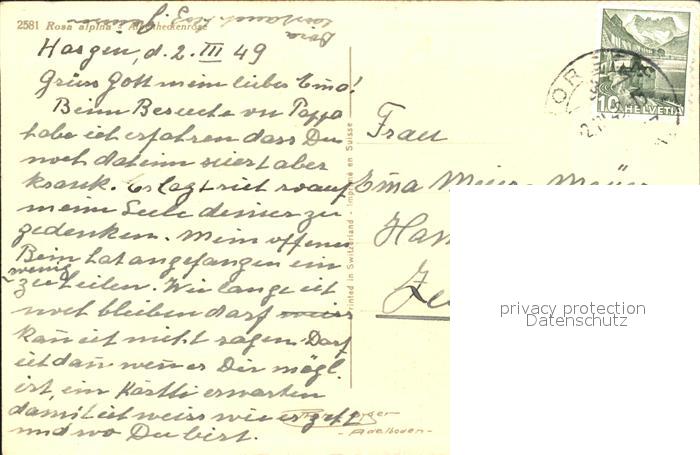 2581 Rosa alpina - Alpenheckenrose
Horgen, d. 2. III 49
Grüss Gott mein lieber Ema!
Beim Besuche von Pappa
habe ich erfahren dass Du
noch daheim seiest aber
krank. Es lagt sich so auf
meine Seele deiner zu
gedenken. Mein offenes
Bein hat angefangen ein
wenig
zu heilen. Wie lange ich
noch bleiben darf weiss
kañ ich nicht sagen. Darf
ich dañ weñ er Dir mögl.
ist, ein Kärtli erwarten
damit ich weiss wie es geht
und wo Du bist.
Printed in Switzerland - Imprimé en Suisse
Frau
Ema Meier - Meier
Ha
Ze
10 HELVETIA
HOR
Adelboden
privacy protection
Datenschutz